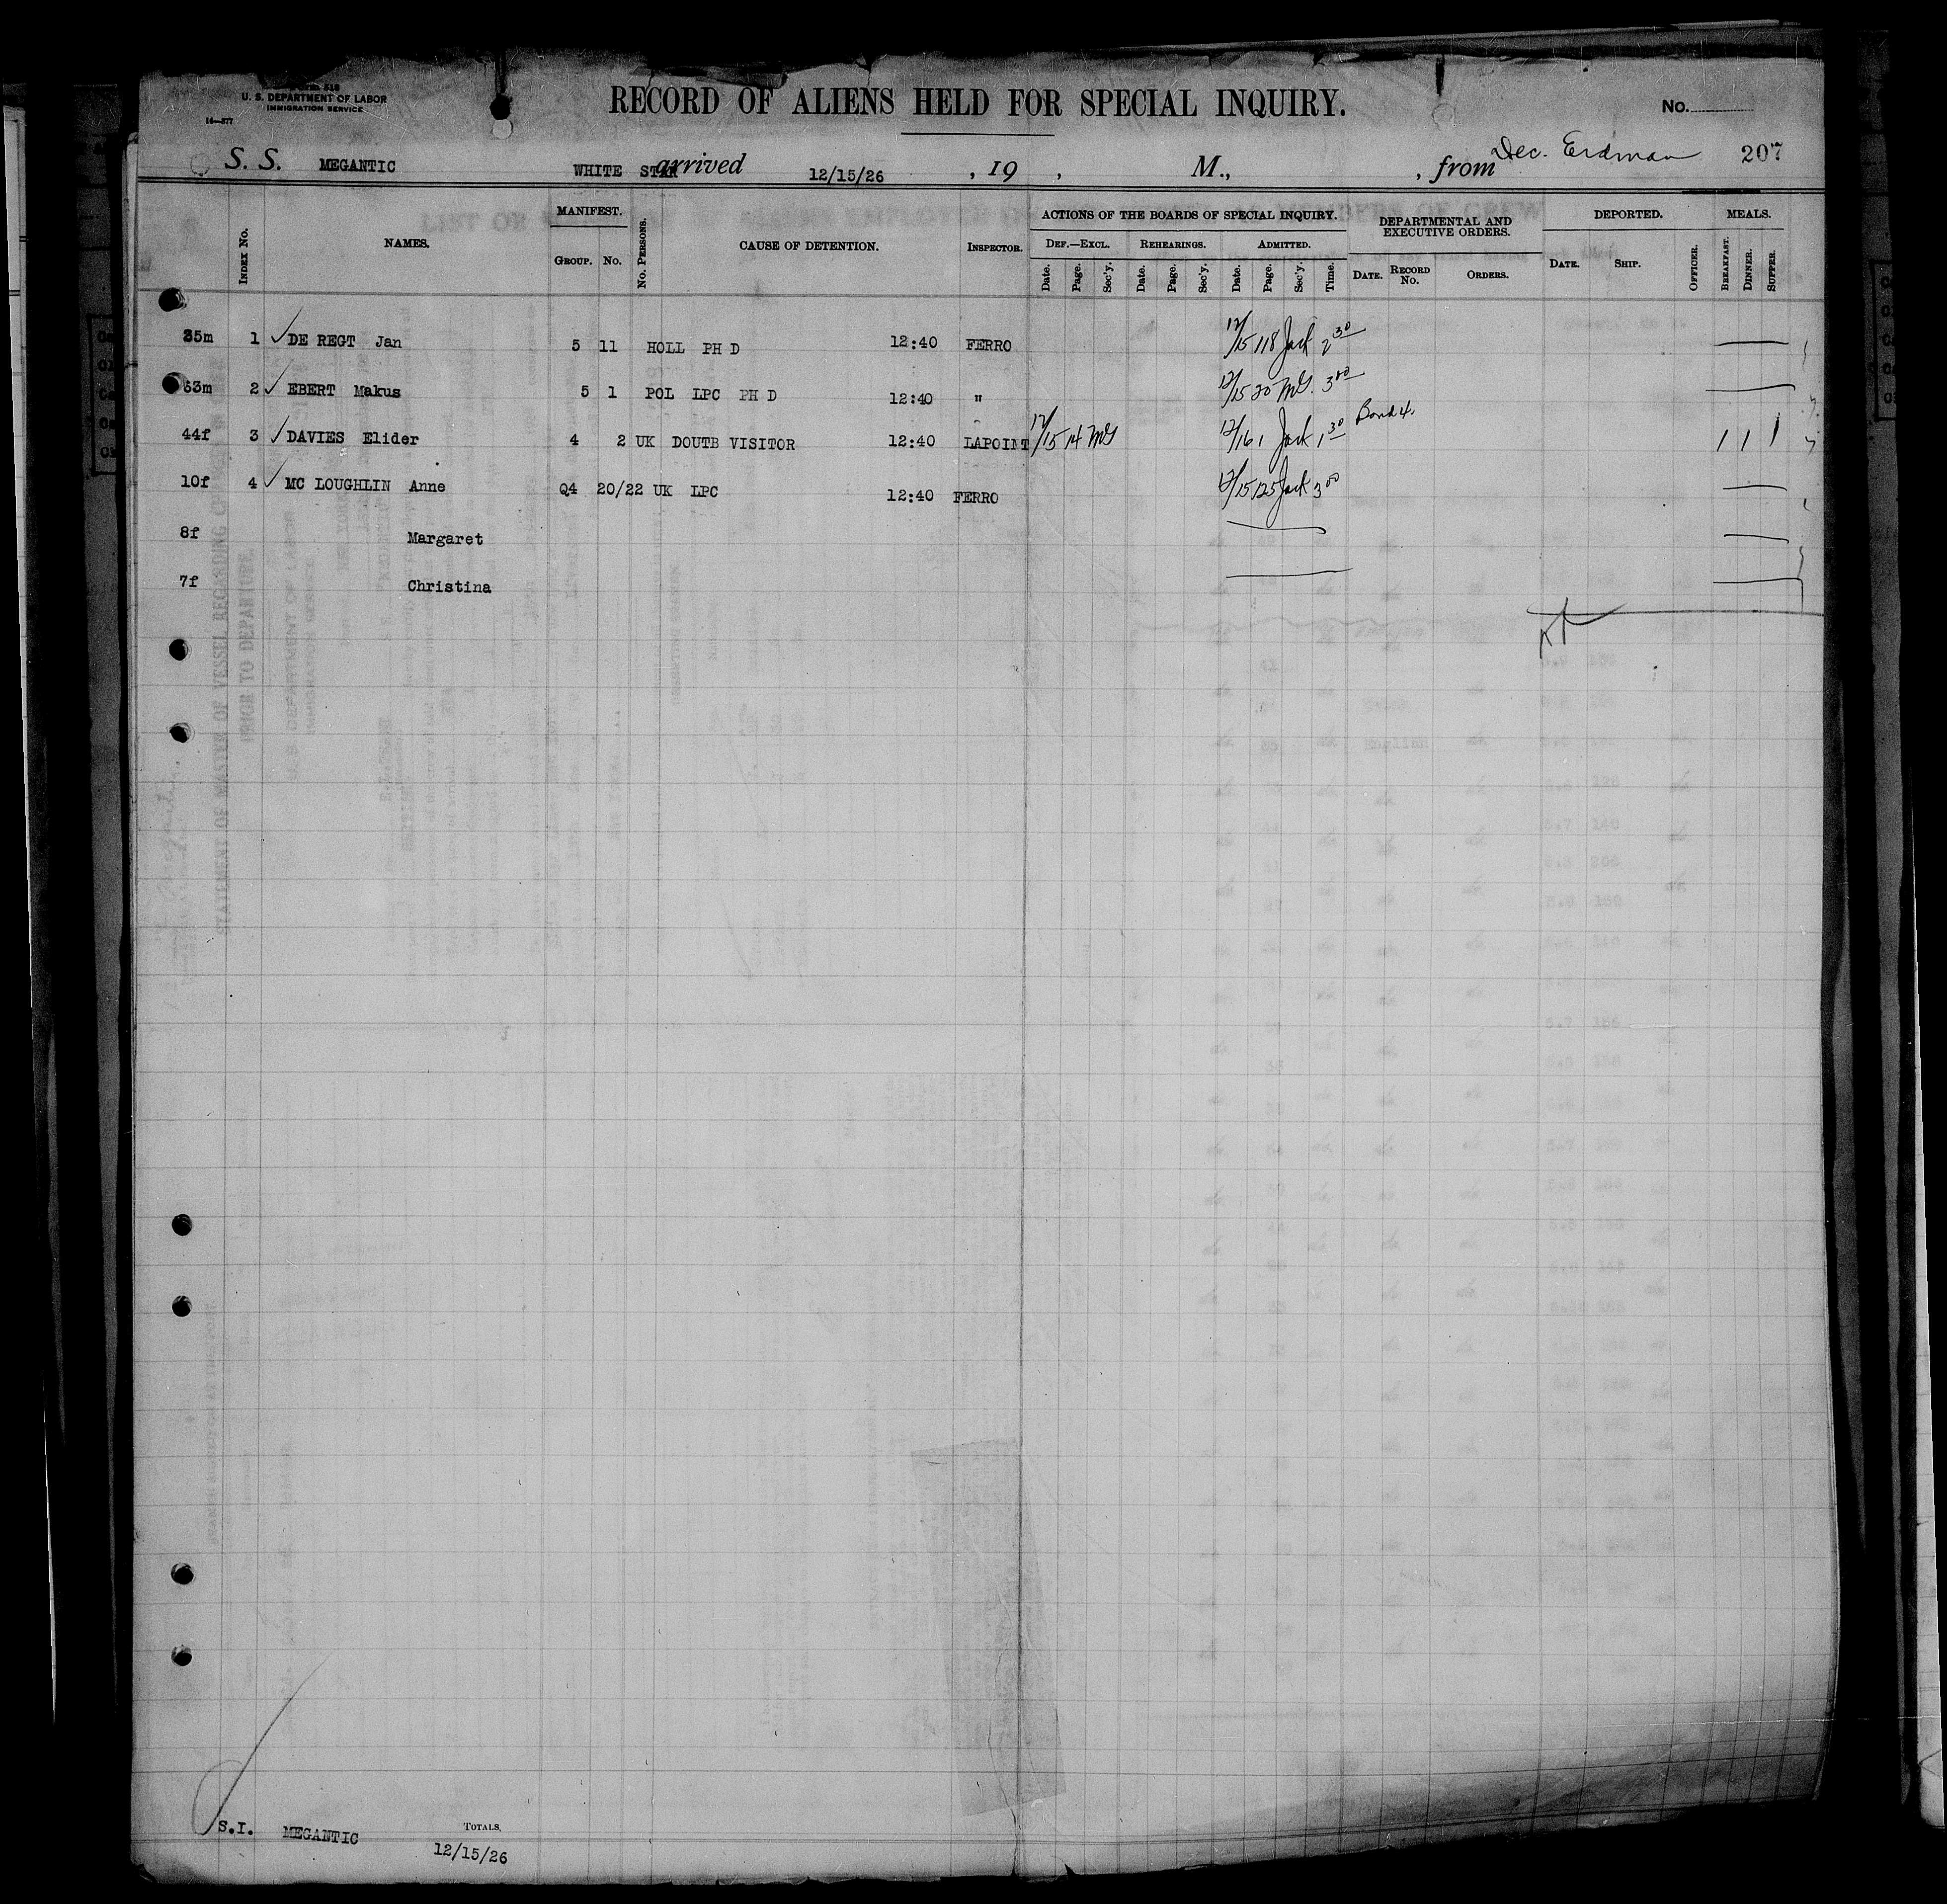 Form 518
U. S. DEPARTMENT OF LABOR
IMMIGRATION SERVICE
14—377
RECORD OF ALIENS HELD FOR SPECIAL INQUIRY.
No.
S. S. MEGANTIC WHITE STAR arrived 12/15/26 , 19 , M., , from Dec. Erdman 207
INDEX No. NAMES. MANIFEST. GROUP. No. No. PERSONS. CAUSE OF DETENTION. INSPECTOR. ACTIONS OF THE BOARDS OF SPECIAL INQUIRY. DEPARTMENTAL AND EXECUTIVE ORDERS. DEPORTED. MEALS.
DEF.—EXCL. REHEARINGS. ADMITTED.
Date. Page. Sec'y. Date. Page. Sec'y. Date. Page. Sec'y. Time. DATE. RECORD No. ORDERS. DATE. SHIP. OFFICER. BREAKFAST. DINNER. SUPPER.
35m 1 ✓ DE REGT Jan 5 11 HOLL PH D 12:40 FERRO 12/15 118 Jack 2 30
53m 2 ✓ EBERT Makus 5 1 POL LPC PH D 12:40 " 12/15 20 MG. 3 00
44f 3 ✓ DAVIES Elider 4 2 UK DOUTB VISITOR 12:40 LAPOINT 12/15 14 MG 12/16 1 Jack 1 30 Bond 4. 1 1 1
10f 4 ✓ MC LOUGHLIN Anne Q4 20/22 UK LPC 12:40 FERRO 12/15 125 Jack 3 00
8f Margaret
7f Christina
S.I. MEGANTIC TOTALS.
12/15/26